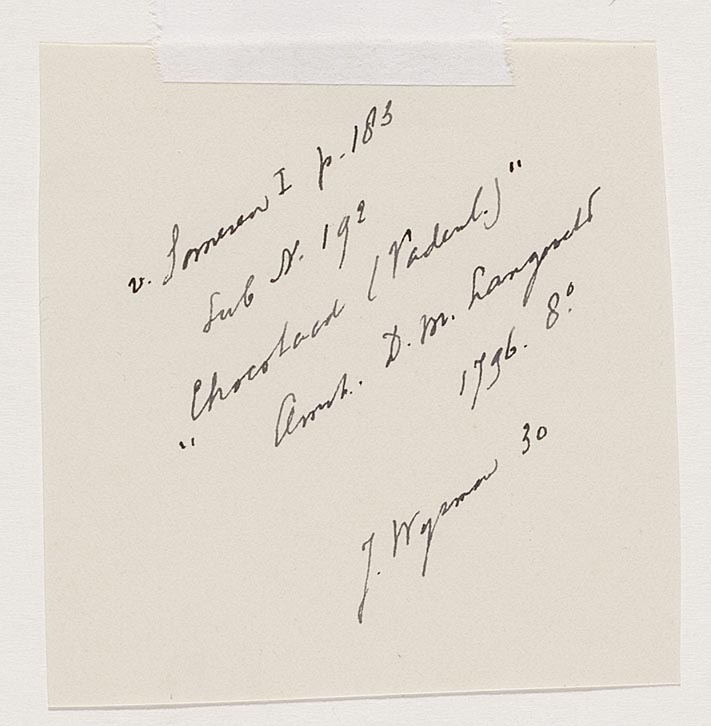 v. Someren I p. 183
sub N. 192
"Chocolaad (Vaderl.)"
Amst. D. M. Langeveld
1796. 8º
J. Wysman 30